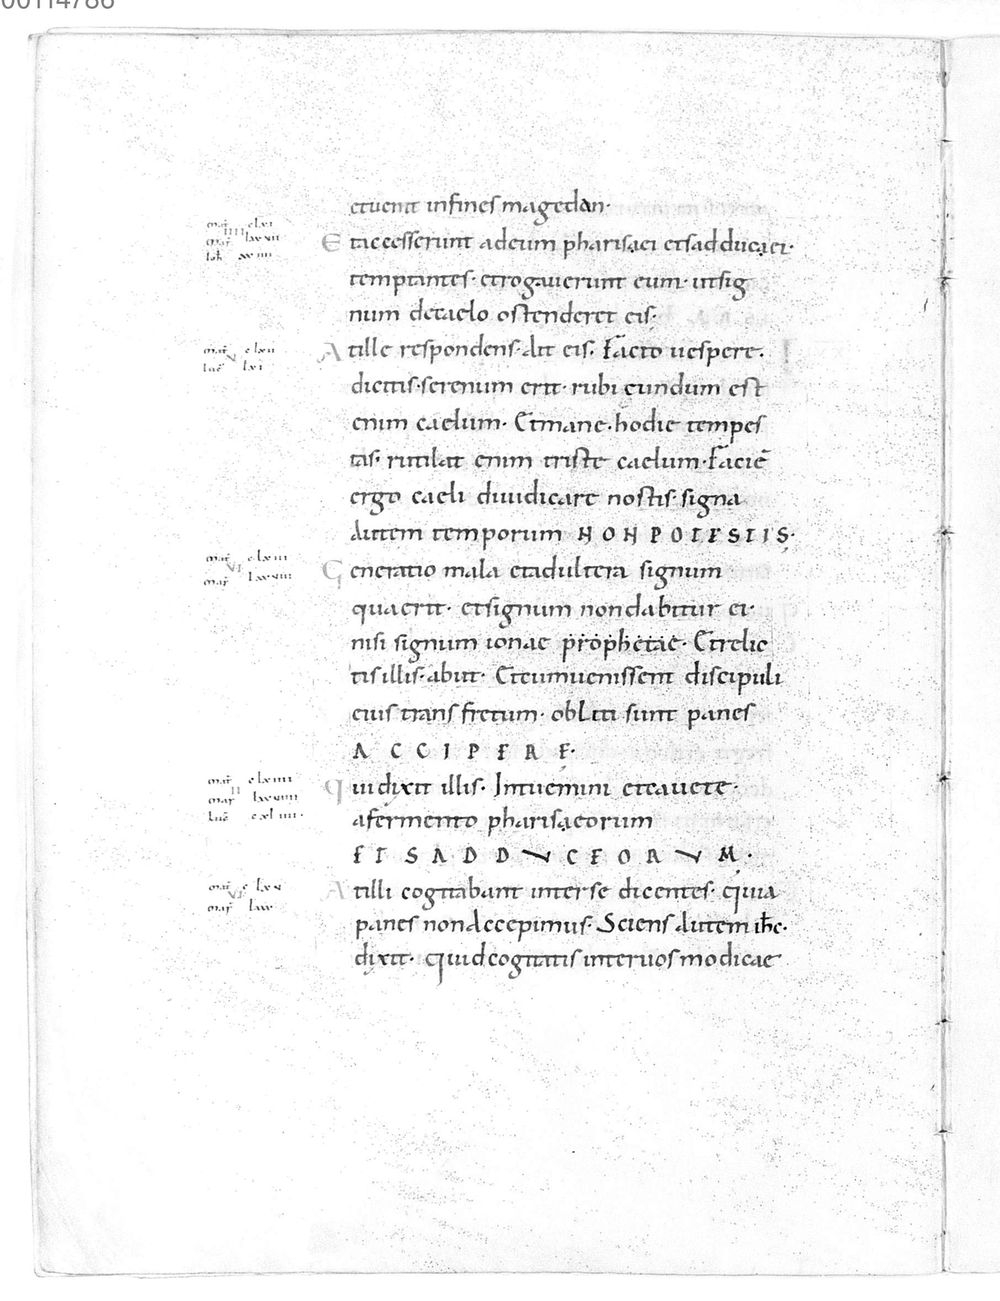 00114786
et uenit in fines magedan·
Et accesserunt ad eum pharisaei et sadducaei·
temptantes· et rogauerunt eum· ut sig
num de caelo ostenderet eis·
At ille respondens· ait eis. Facto uespere.
dicitis· serenum erit· rubicundum est
enim caelum· Et mane· hodie tempes
tas· rutilat enim triste caelum· Faciē
ergo caeli diiudicare nostis· signa
autem temporum NON POTESTIS·
Generatio mala et adultera signum
quaerit· et signum non dabitur ei·
nisi signum ionae prophetae· Et relic
tis illis· abiit· Et cum uenissent discipuli
eius trans fretum· obliti sunt panes
ACCIPERE·
Qui dixit illis· Intuemini et cauete·
a fermento pharisaeorum
ET SADDUCEORUM·
At illi cogitabant inter se dicentes· quia
panes non accepimus· Sciens autem ihc·
dixit· quid cogitatis inter uos modicae